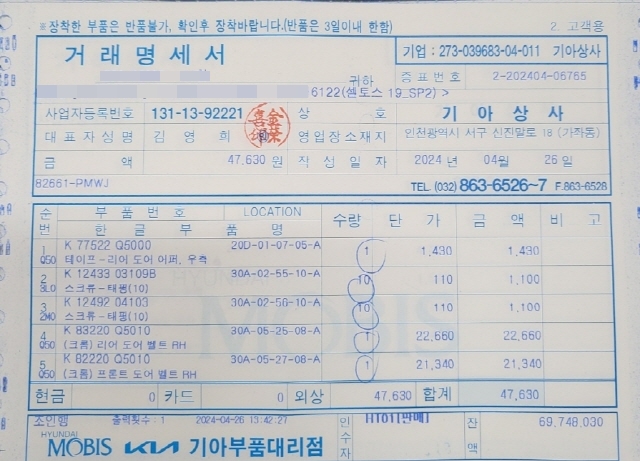 ※장착한 부품은 반품불가, 확인후 장착바랍니다.(반품은 3일이내 한함) 2. 고객용
거래명세서 기업 : 273-039683-04-011 기아상사
귀하 증표번호 2-202404-06765
6122(셀토스 19_SP2) >
사업자등록번호 131-13-92221 상 호 기아상사
대표자성명 김영희 영업장소재지 인천광역시 서구 신진말로 18 (가좌동)
금 액 47,630 원 작성일자 2024 년 04월 26 일
82661-PMWJ TEL. (032) 863-6526~7 F.863-6528
순번 부품번호 LOCATION 수량 단가 금액 비고
한글부품명
1 K 77522 Q5000 20D-01-07-05-A 1 1,430 1,430
Q50 테이프-리어 도어 어퍼, 우측
2 K 12433 03109B 30A-02-55-10-A 10 110 1,100
스크류-태핑(10)
3 K 12492 04103 30A-02-56-10-A 10 110 1,100
스크류-태핑(10)
4 K 83220 Q5010 30A-05-25-08-A 1 22,660 22,660
Q50 (크롬) 리어 도어 벨트 RH
5 K 82220 Q5010 30A-05-27-08-A 1 21,340 21,340
Q50 (크롬) 프론트 도어 벨트 RH
현금 0 카드 0 외상 47,630 합계 47,630
조인행 출력횟수 : 1 2024-04-26 13:42:27 인수자 HT011[판매] 잔액 69,748,030
HYUNDAI
MOBIS KIA 기아부품대리점